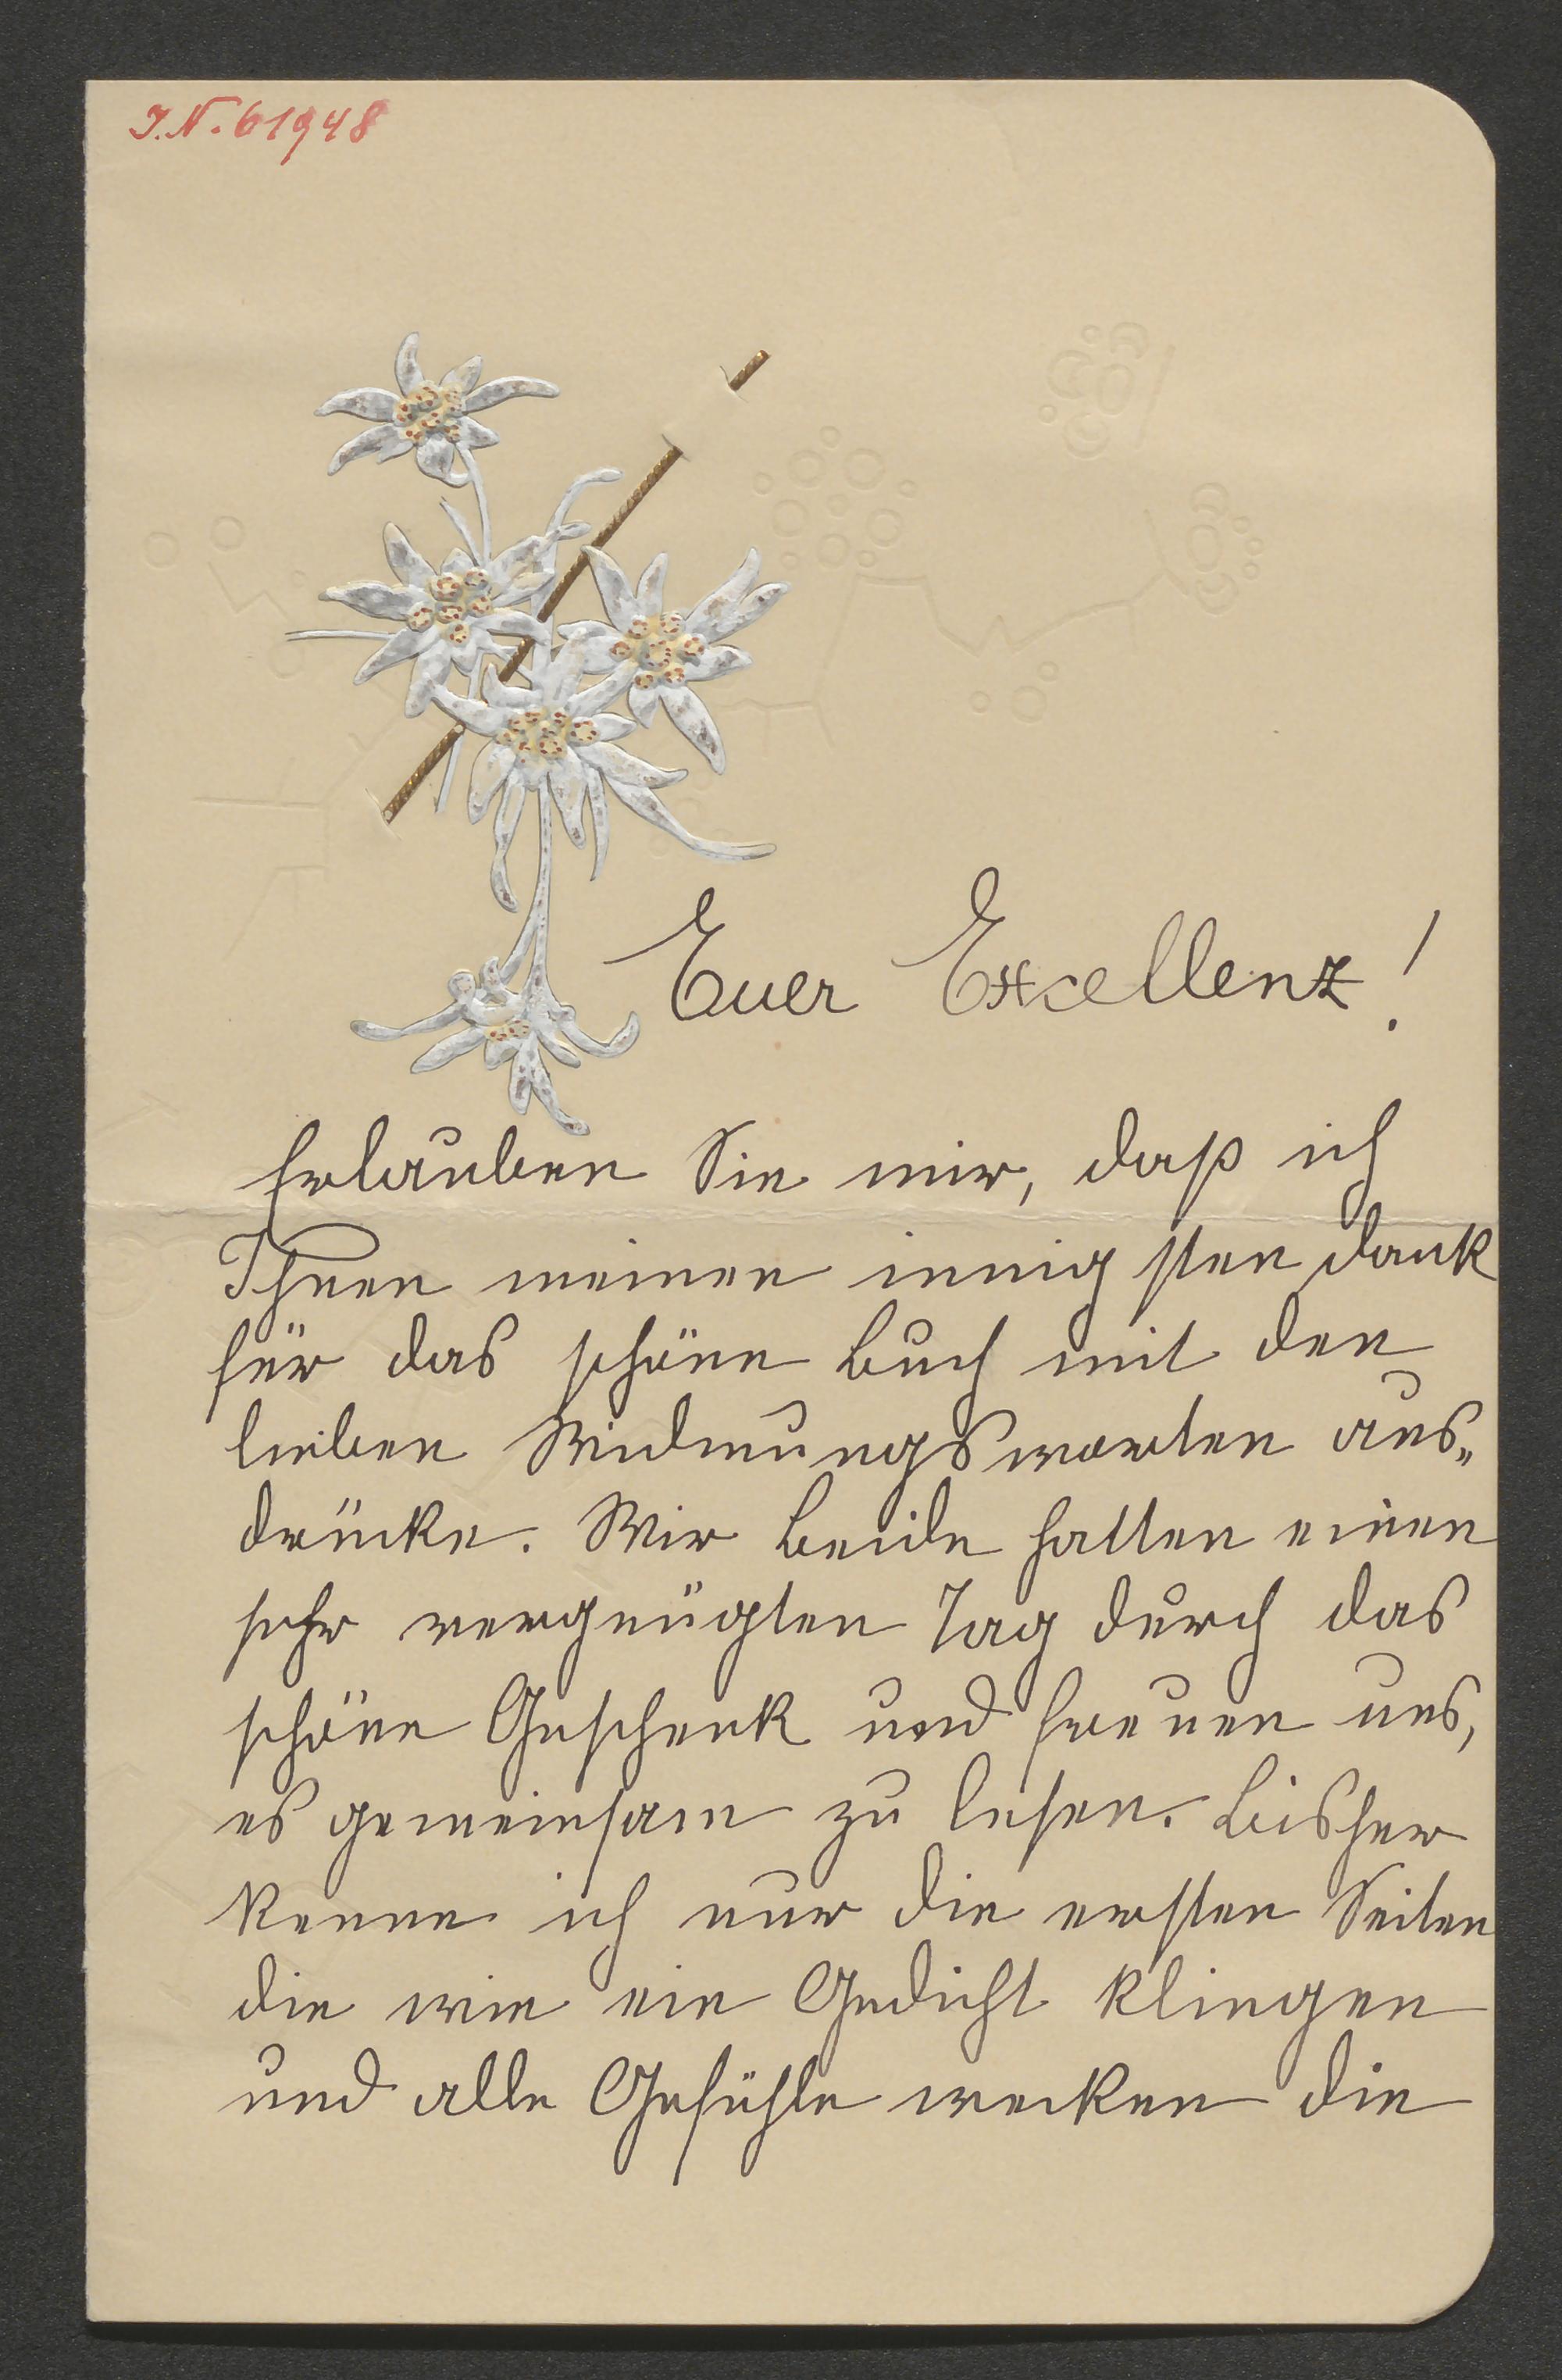 I. N. 61948
Euer Excellenz!
Erlauben Sie mir, daß ich
Ihnen meinen innigsten Dank
für das schöne Buch mit den
lieben Widmungsworten aus„
drücke. Wir beide hatten einen
sehr vergnügten Tag durch das
schöne Geschenk und freuen uns,
es gemeinsam zu lesen. Bisher
kenne ich nur die ersten Seiten
die wie ein Gedicht klingen
und alle Gefühle wecken die